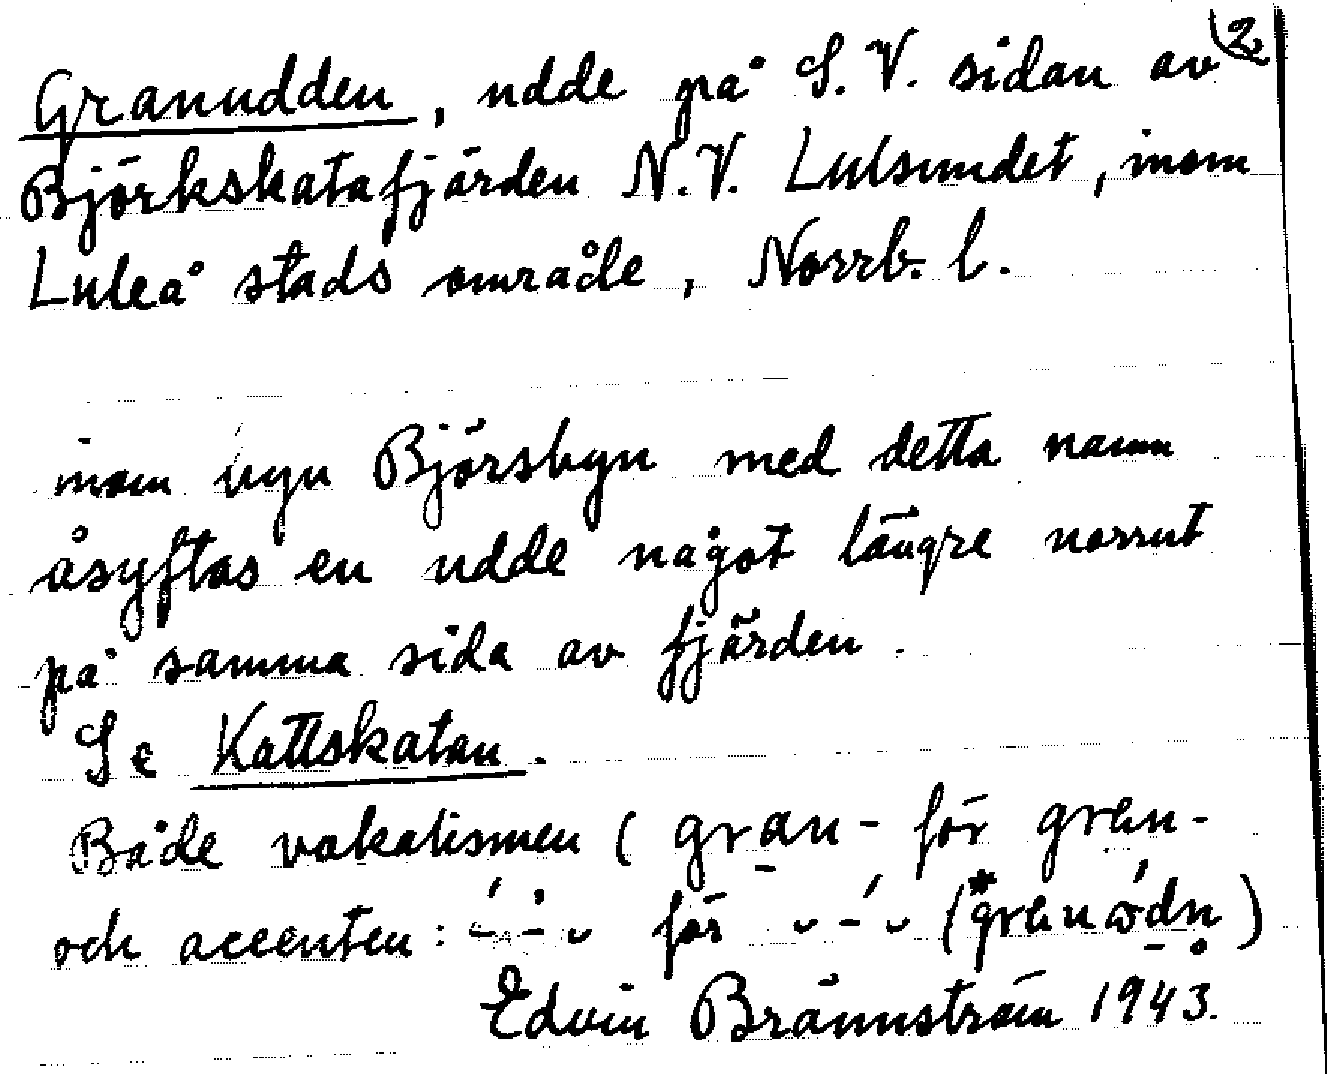 2.
Granudden, udde på S.V. sidan av
Björkskatafjärden N.V. Lulsundet, inom
Luleå stads område, Norrb. l.
inom byn Björsbyn med detta namn
åsyftas en udde något längre norrut
på samma sida av fjärden.
Se Kattskatan.
Både vokalismen (gran- för gren-
och accenten: –́ –̀ ᴗ för ᴗ –́ ᴗ (*
Edvin Brännström 1943.